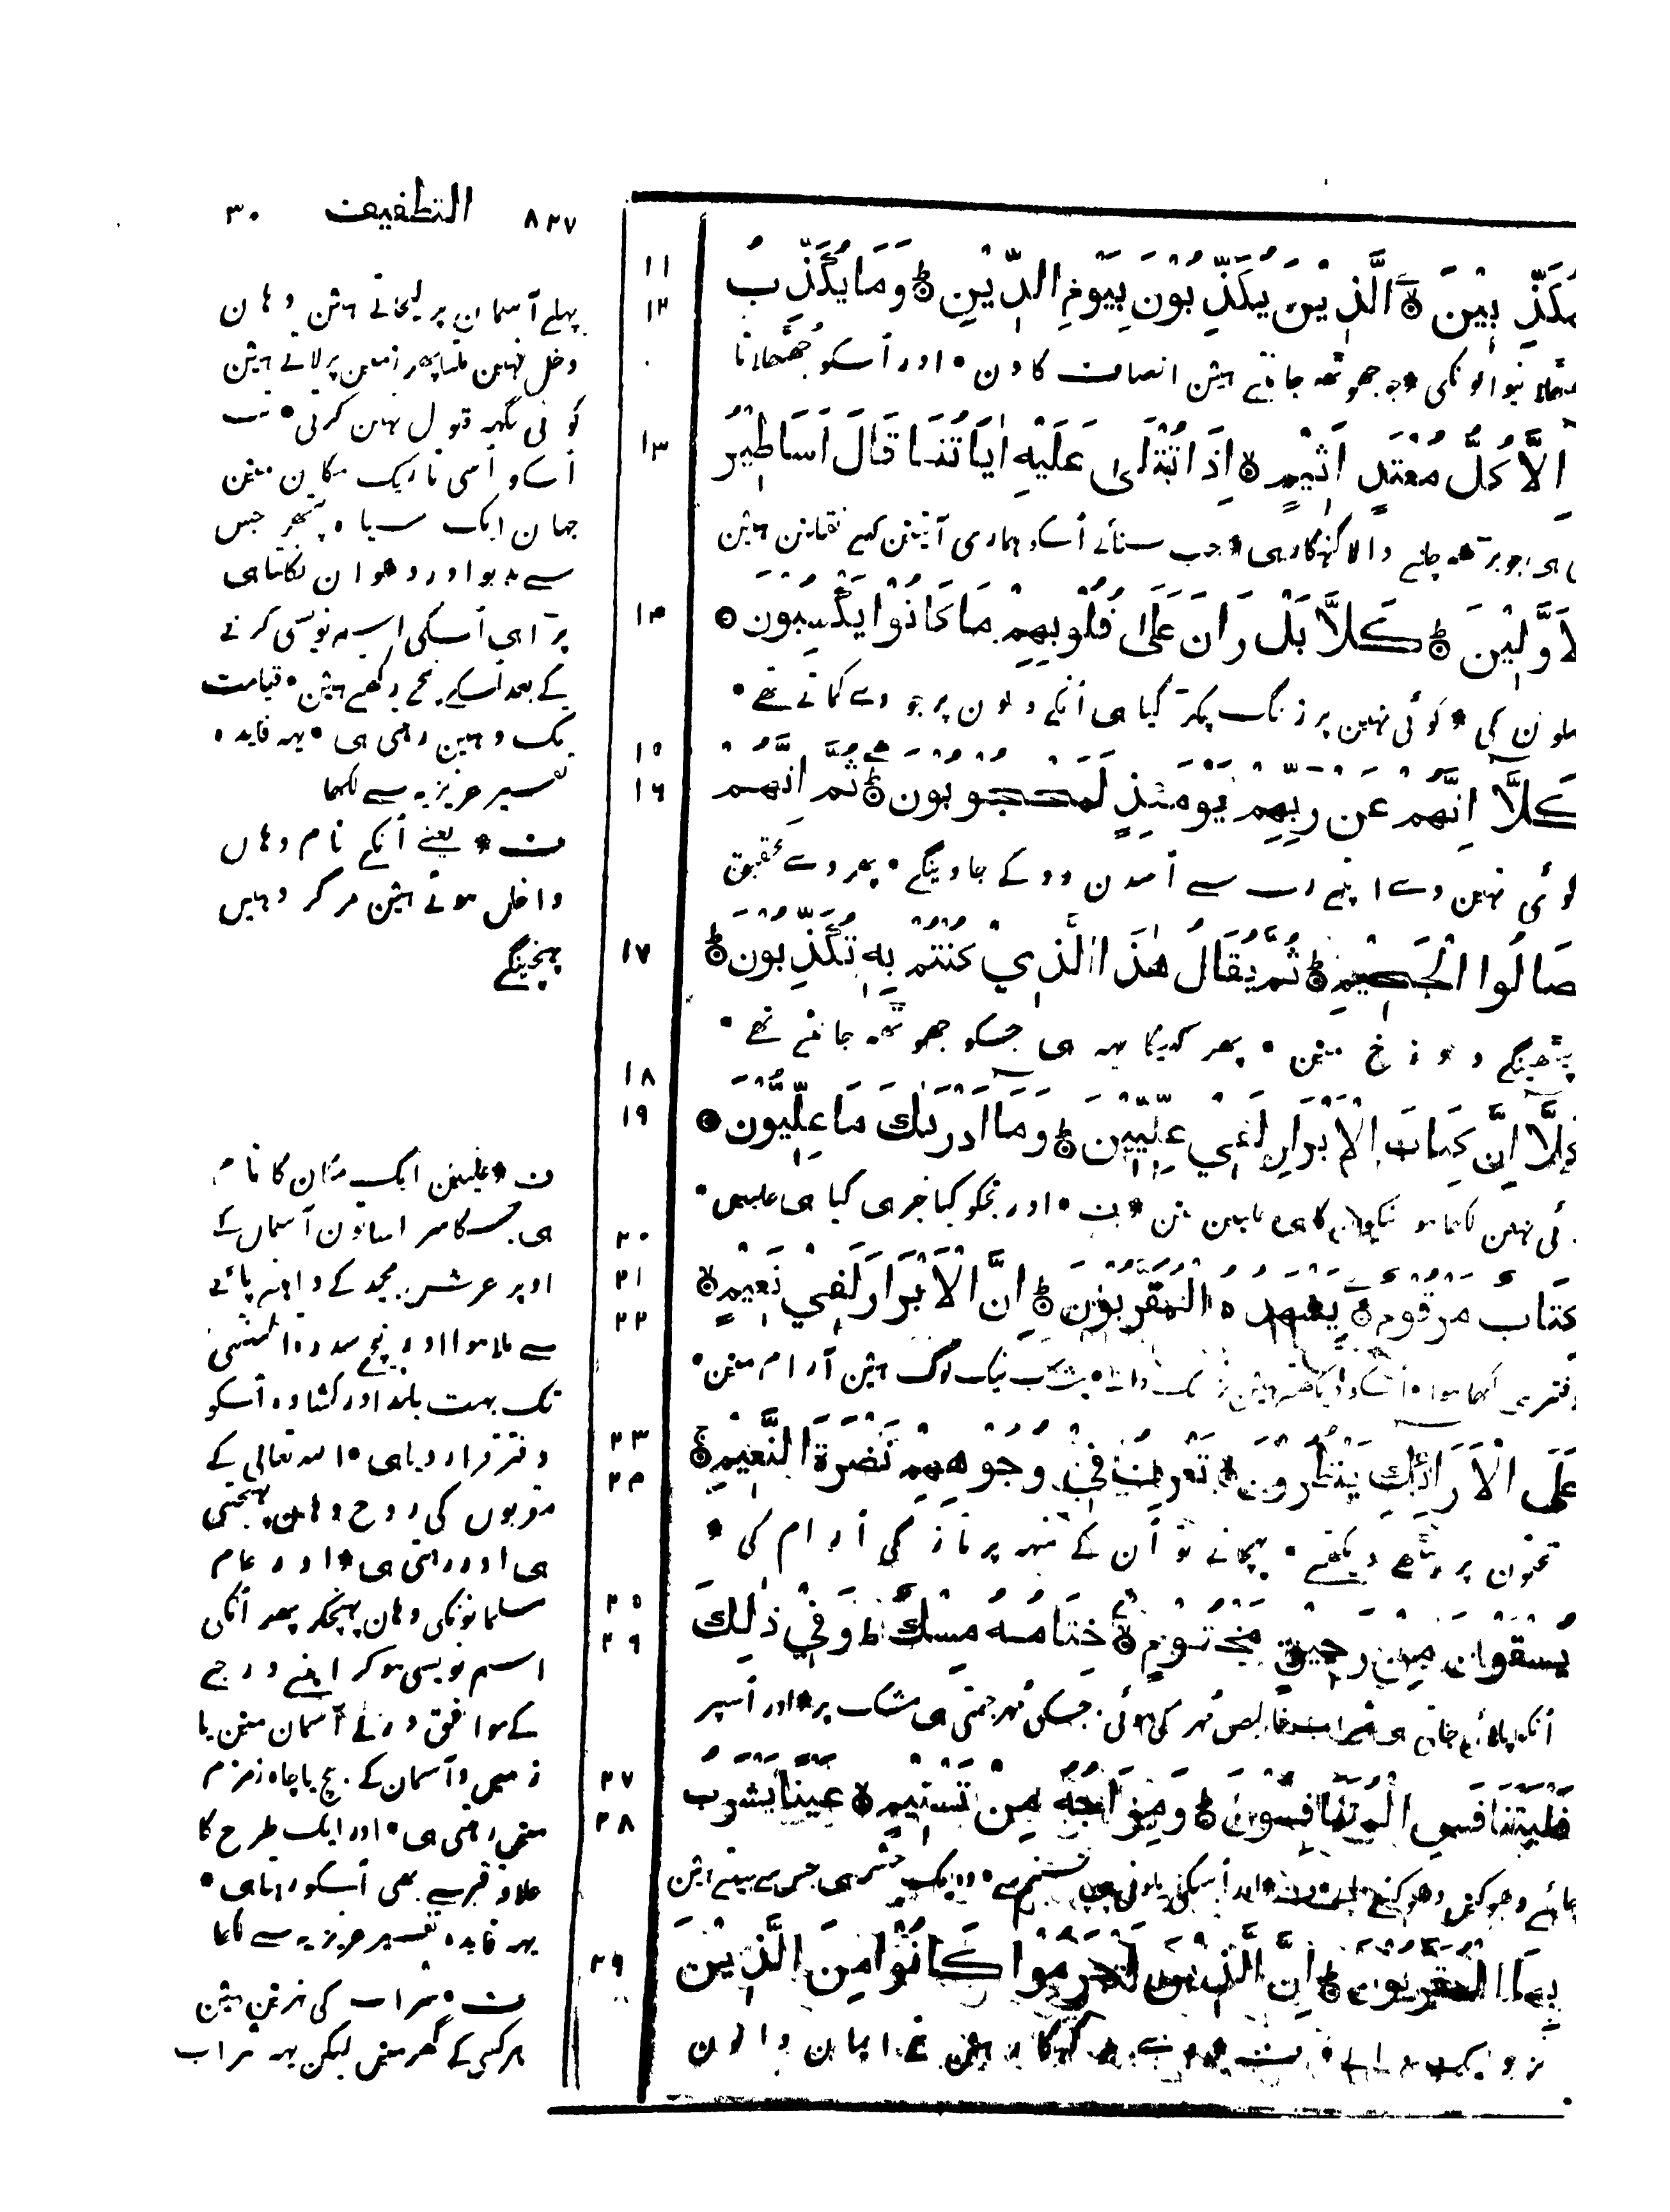 ۸۳۷ التطفيف ۳۰
مُكَذِّبِيْنَ الَّذِيْنَ يُكَذِّبُوْنَ بِيَوْمِ الدِّيْنِ وَمَا يُكَذِّبُ
۱۱
۱۲
جھوتھہ جانتے هیں انصاف کا دن اور اُسکو جُھٹھلاتا
اِلَّا كُلُّ مُعْتَدٍ اَثِيْمٍ اِذَا تُتْلَى عَلَيْهِ اٰيَاتُنَا قَالَ اَسَاطِيْرُ
۱۳
هی جو برّھہ چلنے والا گنہگار هی جب سنائے اُسکو هماری آیتین کہے نقلین هین
لاَوَّلِيْنَ كَلَّا بَلْ رَانَ عَلَى قُلُوْبِهِمْ مَا كَانُوْا يَكْسِبُوْنَ
۱۴
پہلون کی کوئی نہین پر زنگ پکڑ گیا هی اُنکے دلون پر جو وے کماتے تھے
كَلَّا اِنَّهُمْ عَنْ رَبِّهِمْ يَوْمَئِذٍ لَمَحْجُوْبُوْنَ ثُمَّ اِنَّهُمْ
۱۵
۱۶
کوئی نہین وے اپنے رب سے اُسدن روکے جاوینگے پھر وے تحقیق
صَالُوا الْجَحِيْمِ ثُمَّ يُقَالُ هٰذَا الَّذِيْ كُنْتُمْ بِهٖ تُكَذِّبُوْنَ
۱۷
پیٹھینگے دوزخ مین پھر کہیگا یہہ هی جسکو جھوتھہ جانتے تھے
كَلَّا اِنَّ كِتَابَ الْاَبْرَارِ لَفِيْ عِلِّيِّيْنَ وَمَا اَدْرٰىكَ مَا عِلِّيُّوْنَ
۱۸
۱۹
کوئی نہین لکھا هو نیکون کا هی مین ف اور تجکو کیا خبر هی کیا هی علیین
كِتَابٌ مَرْقُوْمٌ يَشْهَدُهُ الْمُقَرَّبُوْنَ اِنَّ الْاَبْرَارَ لَفِيْ نَعِيْمٍ
۲۰
۲۱
۲۲
دفتر هی لکھا هوا اُسکو دیکھتے هین نزدیک والے بیشک نیک لوگ هین آرام مین
عَلَى الْاَرَائِكِ يَنْظُرُوْنَ تَعْرِفُ فِيْ وُجُوْهِهِمْ نَضْرَةَ النَّعِيْمِ
۲۳
۲۴
تختون پر بیٹھے دیکھتے پہچانے تو اُن کے منہہ پر تازگی آرام کی
يُسْقَوْنَ مِنْ رَحِيْقٍ مَخْتُوْمٍ خِتَامُهُ مِسْكٌ وَفِيْ ذٰلِكَ
۲۵
۲۶
اُنکو پلائی جاتی هی شراب خالص مُہر کی هوئی جسکی مُہر جمتی هی مشک پر اور اُسپر
فَلْيَتَنَافَسِ الْمُتَنَافِسُوْنَ وَمِزَاجُهُ مِنْ تَسْنِيْمٍ عَيْنًا يَشْرَبُ
۲۷
۲۸
چاهئے دھوکین دھوکنے والے ف اور اُسکی ملونی هی تسنیم سے وہ ایک چشمہ هی جس سے پیتے هین
بِهَا الْمُقَرَّبُوْنَ اِنَّ الَّذِيْنَ اَجْرَمُوْا كَانُوْا مِنَ الَّذِيْنَ
۲۹
نزدیک والے ف وے جو گنہگار هین تھے ایمان والون
پہلے آسمان پر لیجاتے هین وهان
دخل نہین ملتا پھر زمین پر لاتے هین
کوئی جگہہ قبول نہین کرتی تب
اُسکو اُسی تاریک مکان مین
جہان ایک سیاہ پتھر جس
سے بدبو اور دھوان نکلتا هی
پڑا هی اُسکی اسم نویسی کرنے
کے بعد اُسکے نیچے رکھتے هین قیامت
تک وهین رهتی هی یہہ فایدہ
تفسیر عزیزیہ سے لکھا
ف یعنے اُنکے نام وهاں
داخل هوتے هین مر کر وهیں
پہنچینگے
ف علیین ایک مکان کا نام
هی جسکا سر ا ساتون آسماں کے
اوپر عرش مجید کے داهنے پائے
سے ملا هوا اور نیچے سدرہ المنتہیٰ
تک بہت بلند اور کشادہ اُسکو
دفتر قرار دیا هی اللہ تعالیٰ کے
مقربوں کی روح وهان پہنچتی
هی اور رهتی هی اور عام
مسلمانونکی وهان پہنچکر پھر اُنکی
اسم نویسی هو کر اپنے درجے
کے موافق ورلے آسمان مین یا
زمین و آسمان کے بیچ یا چاہ زمزم
مین رهتی هی اور ایک طرح کا
علاقہ قبر سے بھی اُسکو رهتا هی
یہہ فایدہ تفسیر عزیزیہ سے لکھا
ف شراب کی نہرین هین
هر کسی کے گھر مین لیکن یہہ شراب